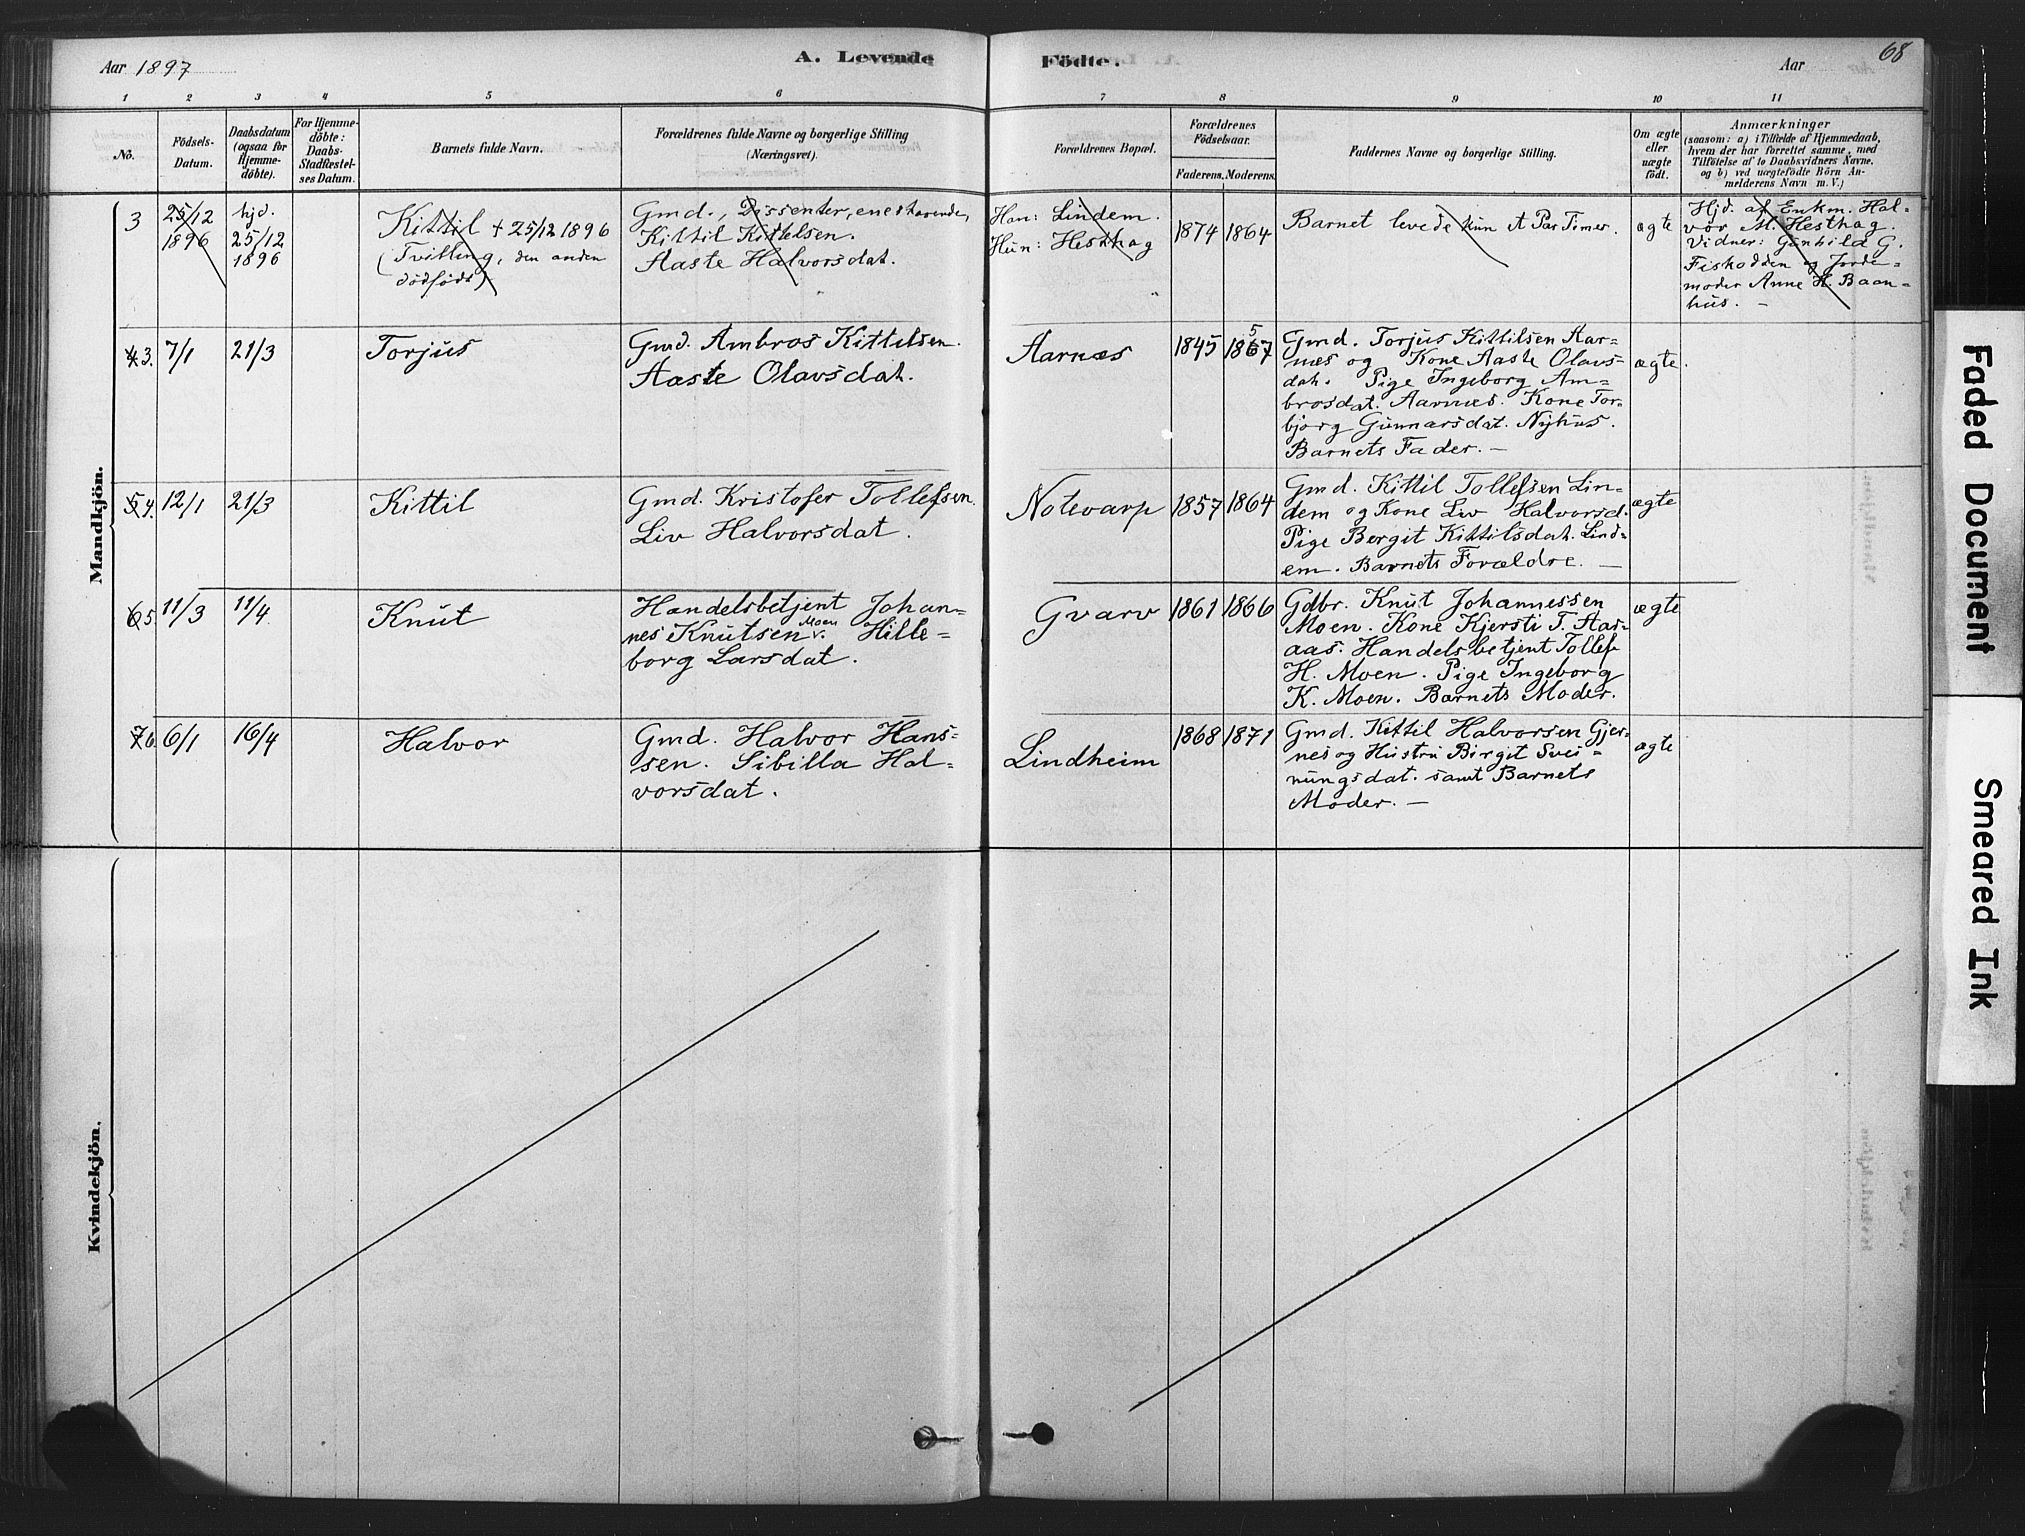 Aar 1897
A. Levende
Födte.
Aar
68
1 2 3 4 5 6 7 8 9 10 11
No.
Födsels-
Datum.
Daabsdatum
(ogsaa for
Hjemme-
döbte).
For Hjemme-
döbte:
Daabs-
Stadfæstel-
ses Datum.
Barnets fulde Navn.
Forældrenes fulde Navne og borgerlige Stilling
(Næringsvei).
Forældrenes Bopæl.
Forældrenes
Födselsaar.
Faderens. Moderens.
Faddernes Navne og borgerlige Stilling.
Om ægte
eller
uægte
födt.
Anmærkninger
(saasom: a) i Tilfælde af Hjemmedaab,
hvem der har forrettet samme, med
Tilföielse af to Daabsvidners Navne.
og b) ved uægtefödte Börn An-
melderens Navn m. V.)
Mandkjön.
3
25/12
1896
hjd.
25/12
1896
Kittil + 25/12 1896
(Tvilling, den anden
dödfödt)
Gmd., Dissenter,
Kittil Kittelsen.
Aaste Halvorsdat.
Han: Lindem.
Hun: Hesthag
1874
1864
Barnet levede kun et Par Timer.
ægte
Hjd. af Enkm. Hal-
vor M. Hesthag.
Vidner: Gunhild G.
Fiskodden og Jorde-
moder Anne H. Baan-
hus. -
4 3.
7/1
21/3
Torjus
Gmd. Ambros Kittilsen.
Aaste Olavsdat.
Aarnæs
1845
5
1867
Gmd. Torjus Kittilsen Aar-
næs og Kone Aaste Olavs-
dat. Pige Ingeborg Am-
brosdat. Aarnæs. Kone Tor-
björg Gunnarsdat. Nyhus.
Barnets Fader. -
ægte.
5 4.
12/1
21/3
Kittil
Gmd. Kristofer Tollefsen.
Liv Halvorsdat.
Notevarp
1857
1864
Gmd. Kittil Tollefsen Lin-
dem og Kone Liv Halvorsd.
Pige Bergit Kittilsdat. Lind-
em. Barnets Forældre. -
ægte
6 5
11/3
11/4
Knut
Handelsbetjent Johan-
nes Knutsen Moen. Hille-
borg Larsdat.
Gvarv
1861
1866
Gdbr. Knut Johannessen
Moen. Kone Kjersti T. Aar-
aas. Handelsbetjent Tollef
H. Moen. Pige Ingeborg
K. Moen. Barnets Moder.
ægte
7 6
6/1
16/4
Halvor
Gmd. Halvor Hans-
sen. Sibilla Hal-
vorsdat.
Lindheim
1868
1871
Gmd. Kittil Halvorsen Gjer-
nes og Hustru Birgit Svei-
nungsdat. samt Barnets
Moder. -
ægte
Kvindekjön.
Faded Document
Smeared Ink